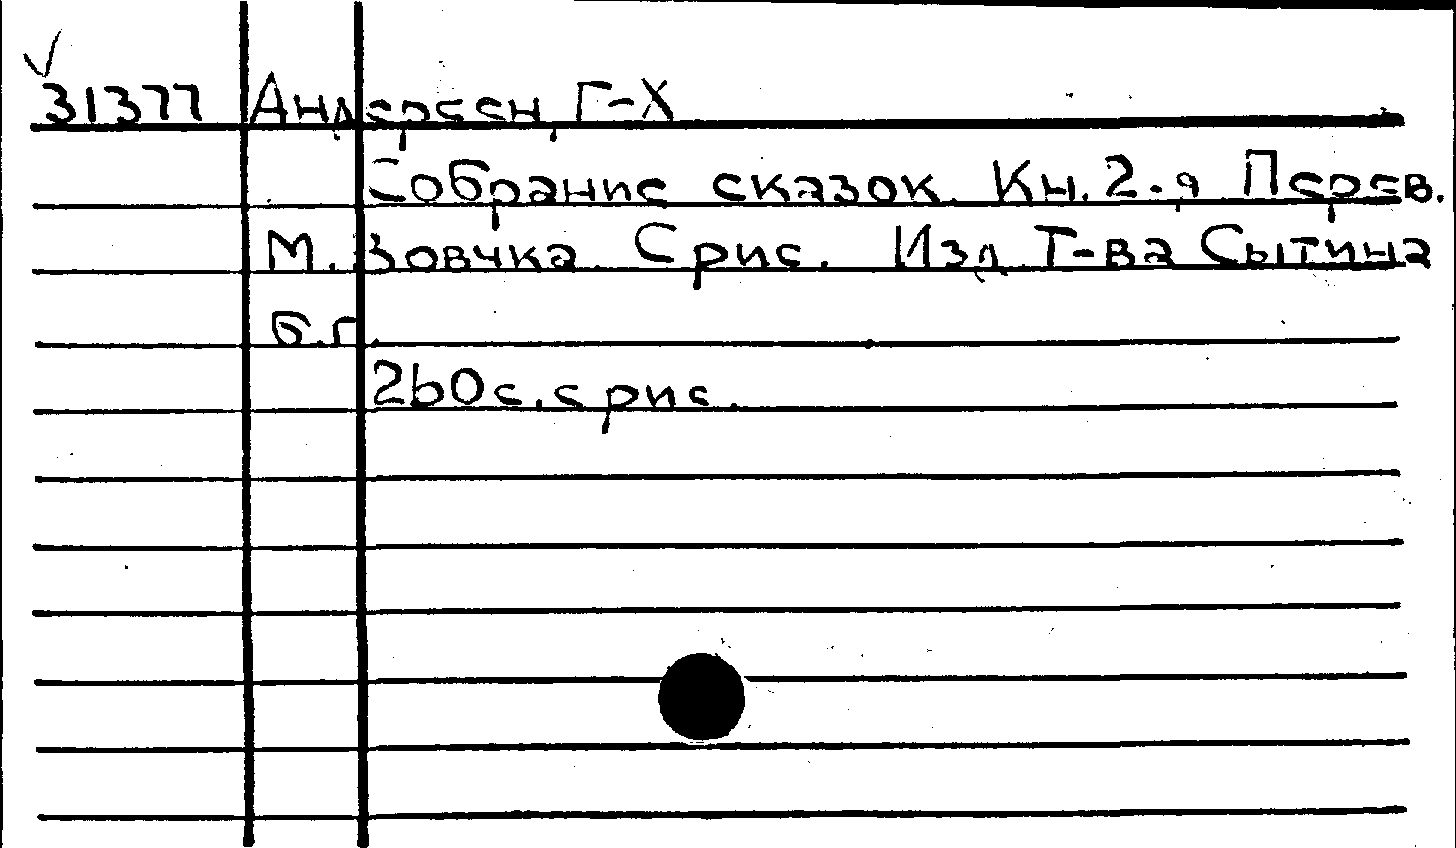 31377 Андерсен, Г-Х
Собрание сказок. Кн. 2-я Перев.
М. Вовчка. С рис. Изд. Т-ва Сытина
б.г.
260 с. с рис.